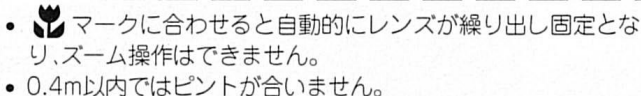 • マークに合わせると自動的にレンズが繰り出し固定とな
り、ズーム操作はできません。
• 0.4m以内ではピントが合いません。